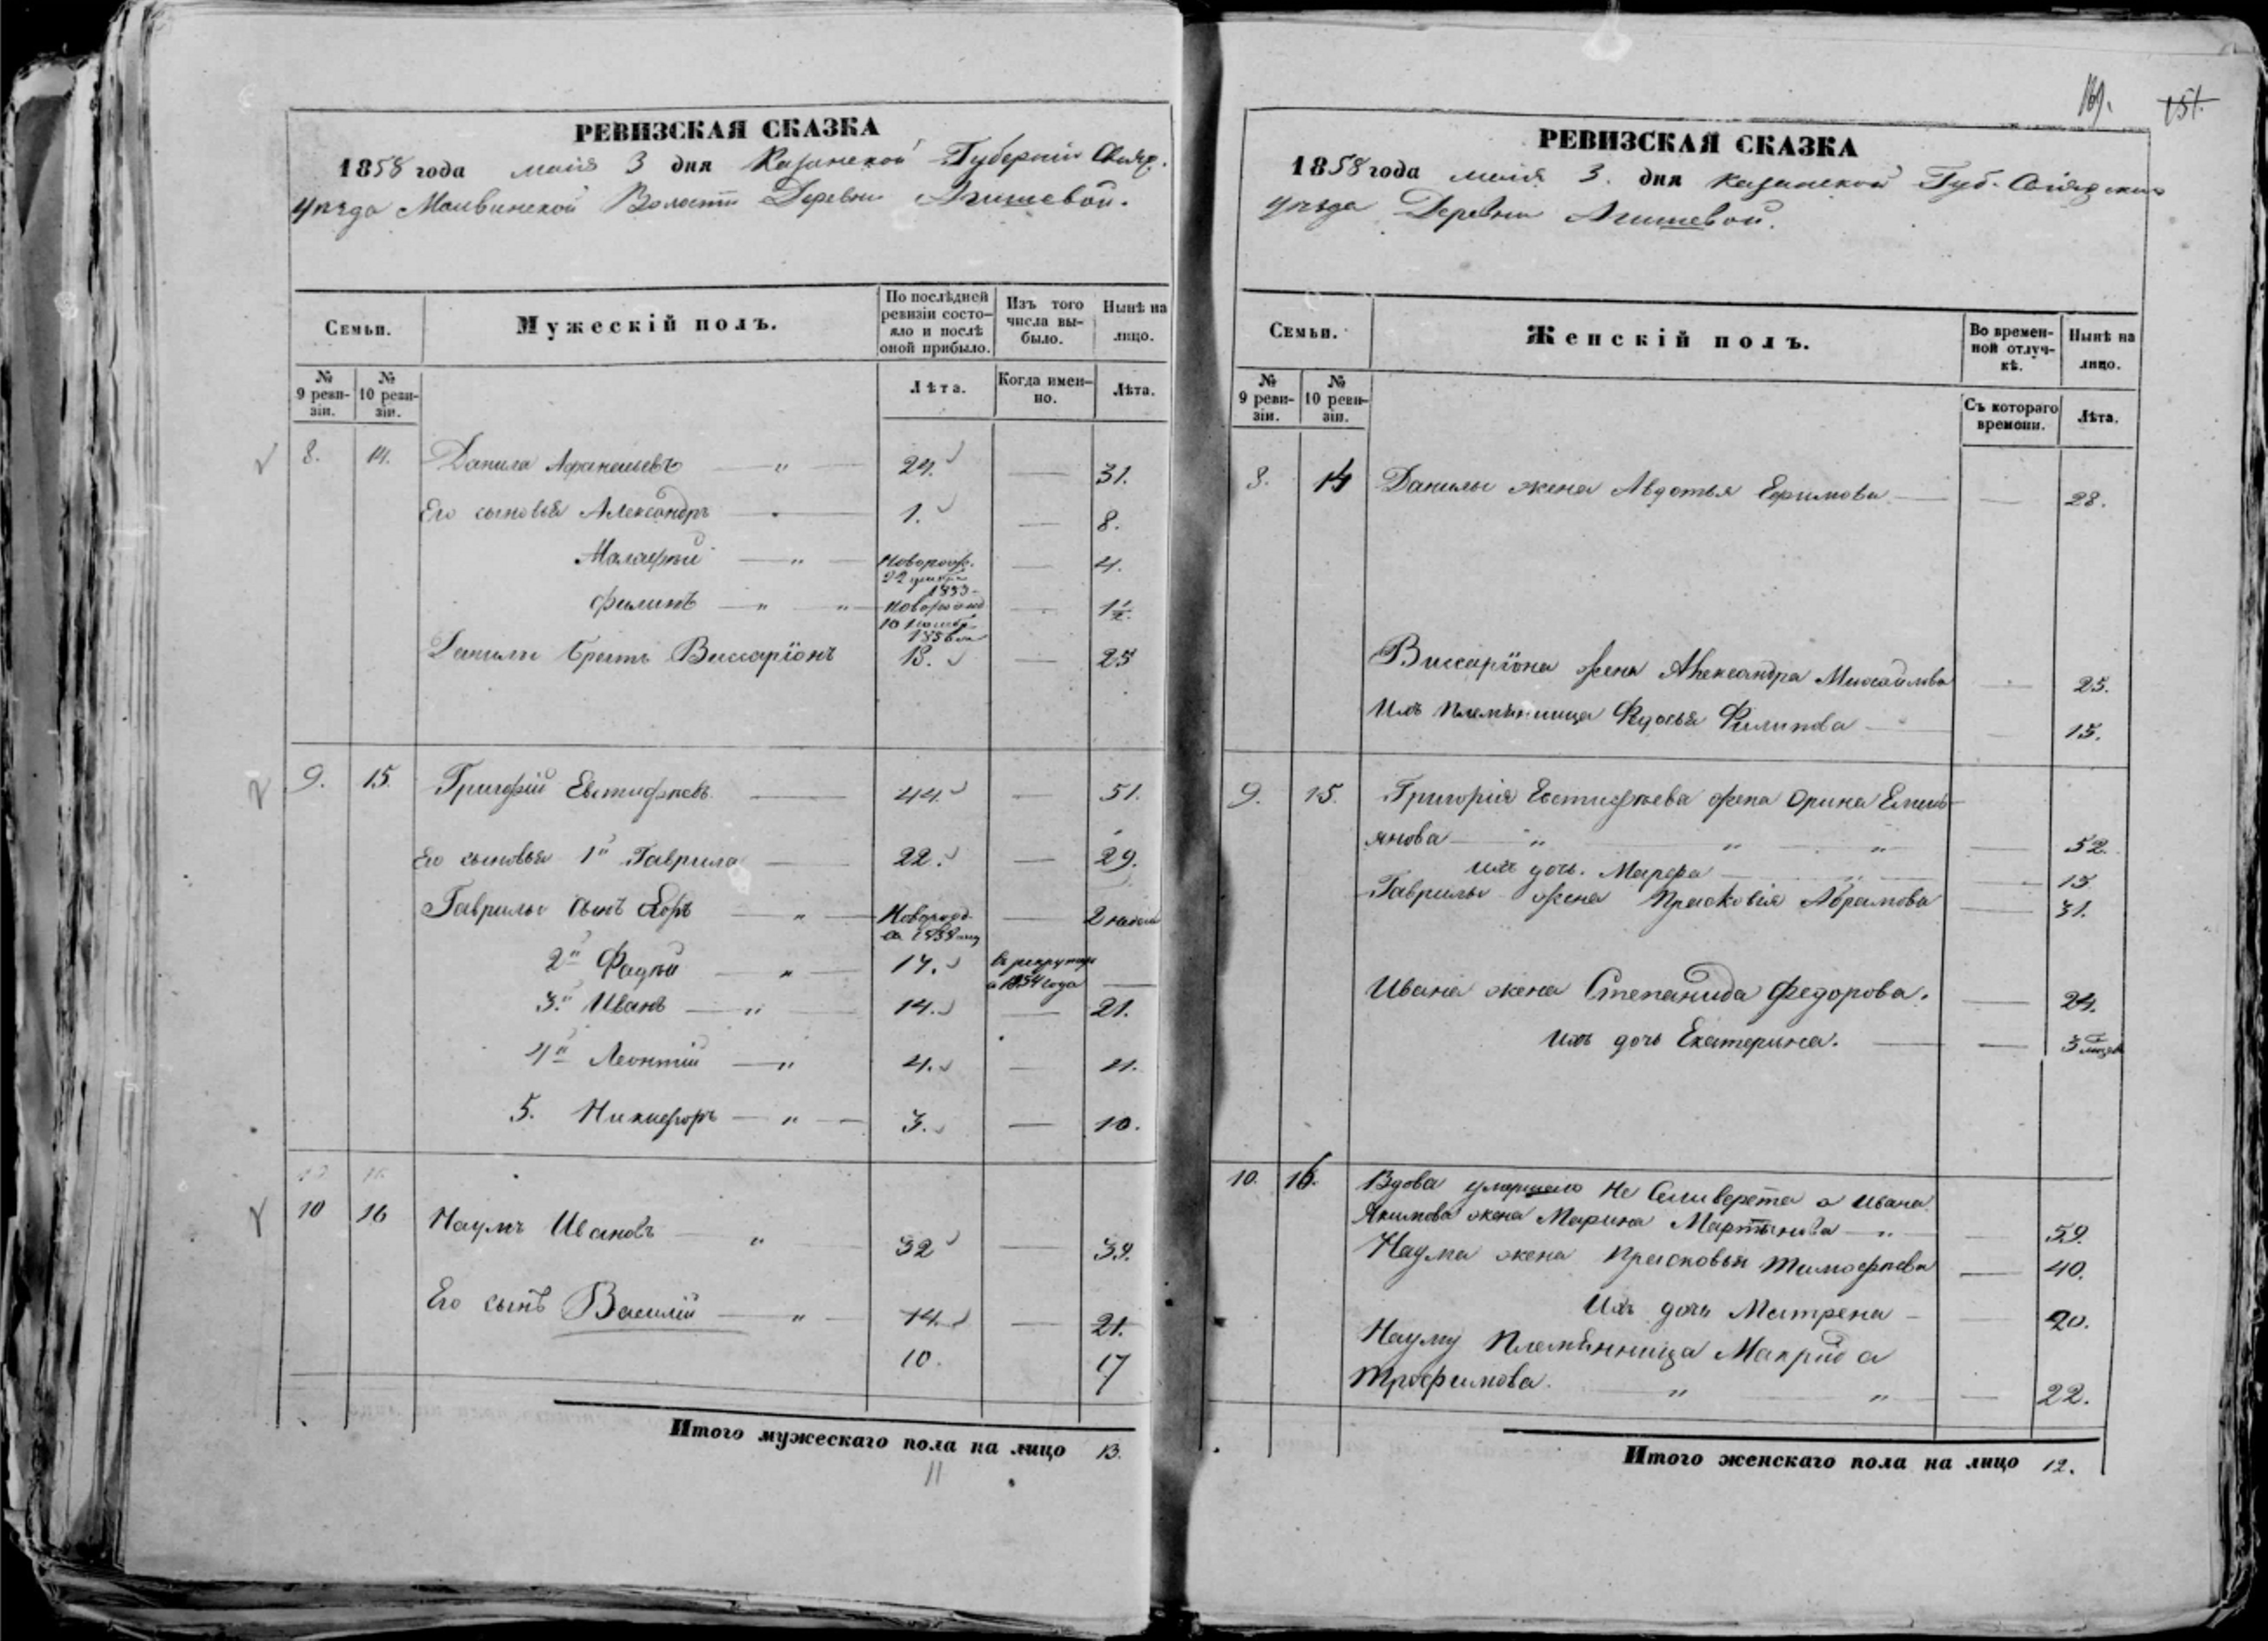 169. 151.
РЕВИЗСКАЯ СКАЗКА
1858 года мая 3 дня Казанской Губернии Свияж.
уезда Волости Деревни Агишевой.
Семьи.
Мужескій полъ.
По послѣдней ревизіи состо-
яло и послѣ оной прибыло.
Изъ того числа вы-
было.
Нынѣ на лицо.
№ 9 реви-
зіи.
№ 10 реви-
зіи.
Лѣта.
Когда имен-
но.
Лѣта.
8. 14. Данила Афанасьевъ — " — 24. — 31.
Его сыновья Александръ — 1. — 8.
Малафѣй — " — новорож. — 4.
22
1853
Филипъ — " — " — новорожд — 1 1/2.
10
1856
Данилы братъ Виссаріонъ 18. — 25
9. 15. Григорій Евстифѣевъ — 44. — 51.
Его сыновья 1й Гаврила — 22. — 29.
Гаврилы сынъ Егоръ — " — Новорожд — 2
1858
2й Фадѣй — " — 17. въ рекруты —
1854 года
3й Иванъ — " — 14. — 21.
4й Леонтій — " 4. — 11.
5. Никифоръ — " — 3. — 10.
10 16 Наумъ Ивановъ — " — 32 — 39.
Его сынъ Василій — " — 14. — 21.
10. 17
Итого мужескаго пола на лицо 13.
11
РЕВИЗСКАЯ СКАЗКА
1858 года мая 3. дня Казанской Губ. Свіяжскаго
уезда Деревни Агишевой.
Семьи.
Женскій полъ.
Во времен-
ной отлуч-
кѣ.
Нынѣ на лицо.
№ 9 реви-
зіи.
№ 10 реви-
зіи.
Съ котораго времени.
Лѣта.
8. 14 Данилы жена Авдотья Ефимова — — 28.
Виссаріона жена Александра Михайлова — 25.
Ихъ племянница Филипова — 15.
9. 15. Григорія Евстифѣева жена Орина Емель-
янова — " " " — 52.
Ихъ дочь. Марфа — — 15
Гаврилы жена Прасковія Абрамова — 31.
Ивана жена Степанида Федорова. — 24.
Ихъ дочь Екатерина. — — 3
10. 16. Вдова умершаго Ивана
Якимова жена Марина Мартынова — " — 59.
Наума жена Прасковья Тимофѣева — 40.
Ихъ дочь Матрена — — 20.
Науму племянница Макрида
Трофимова. " " — 22.
Итого женскаго пола на лицо 12.